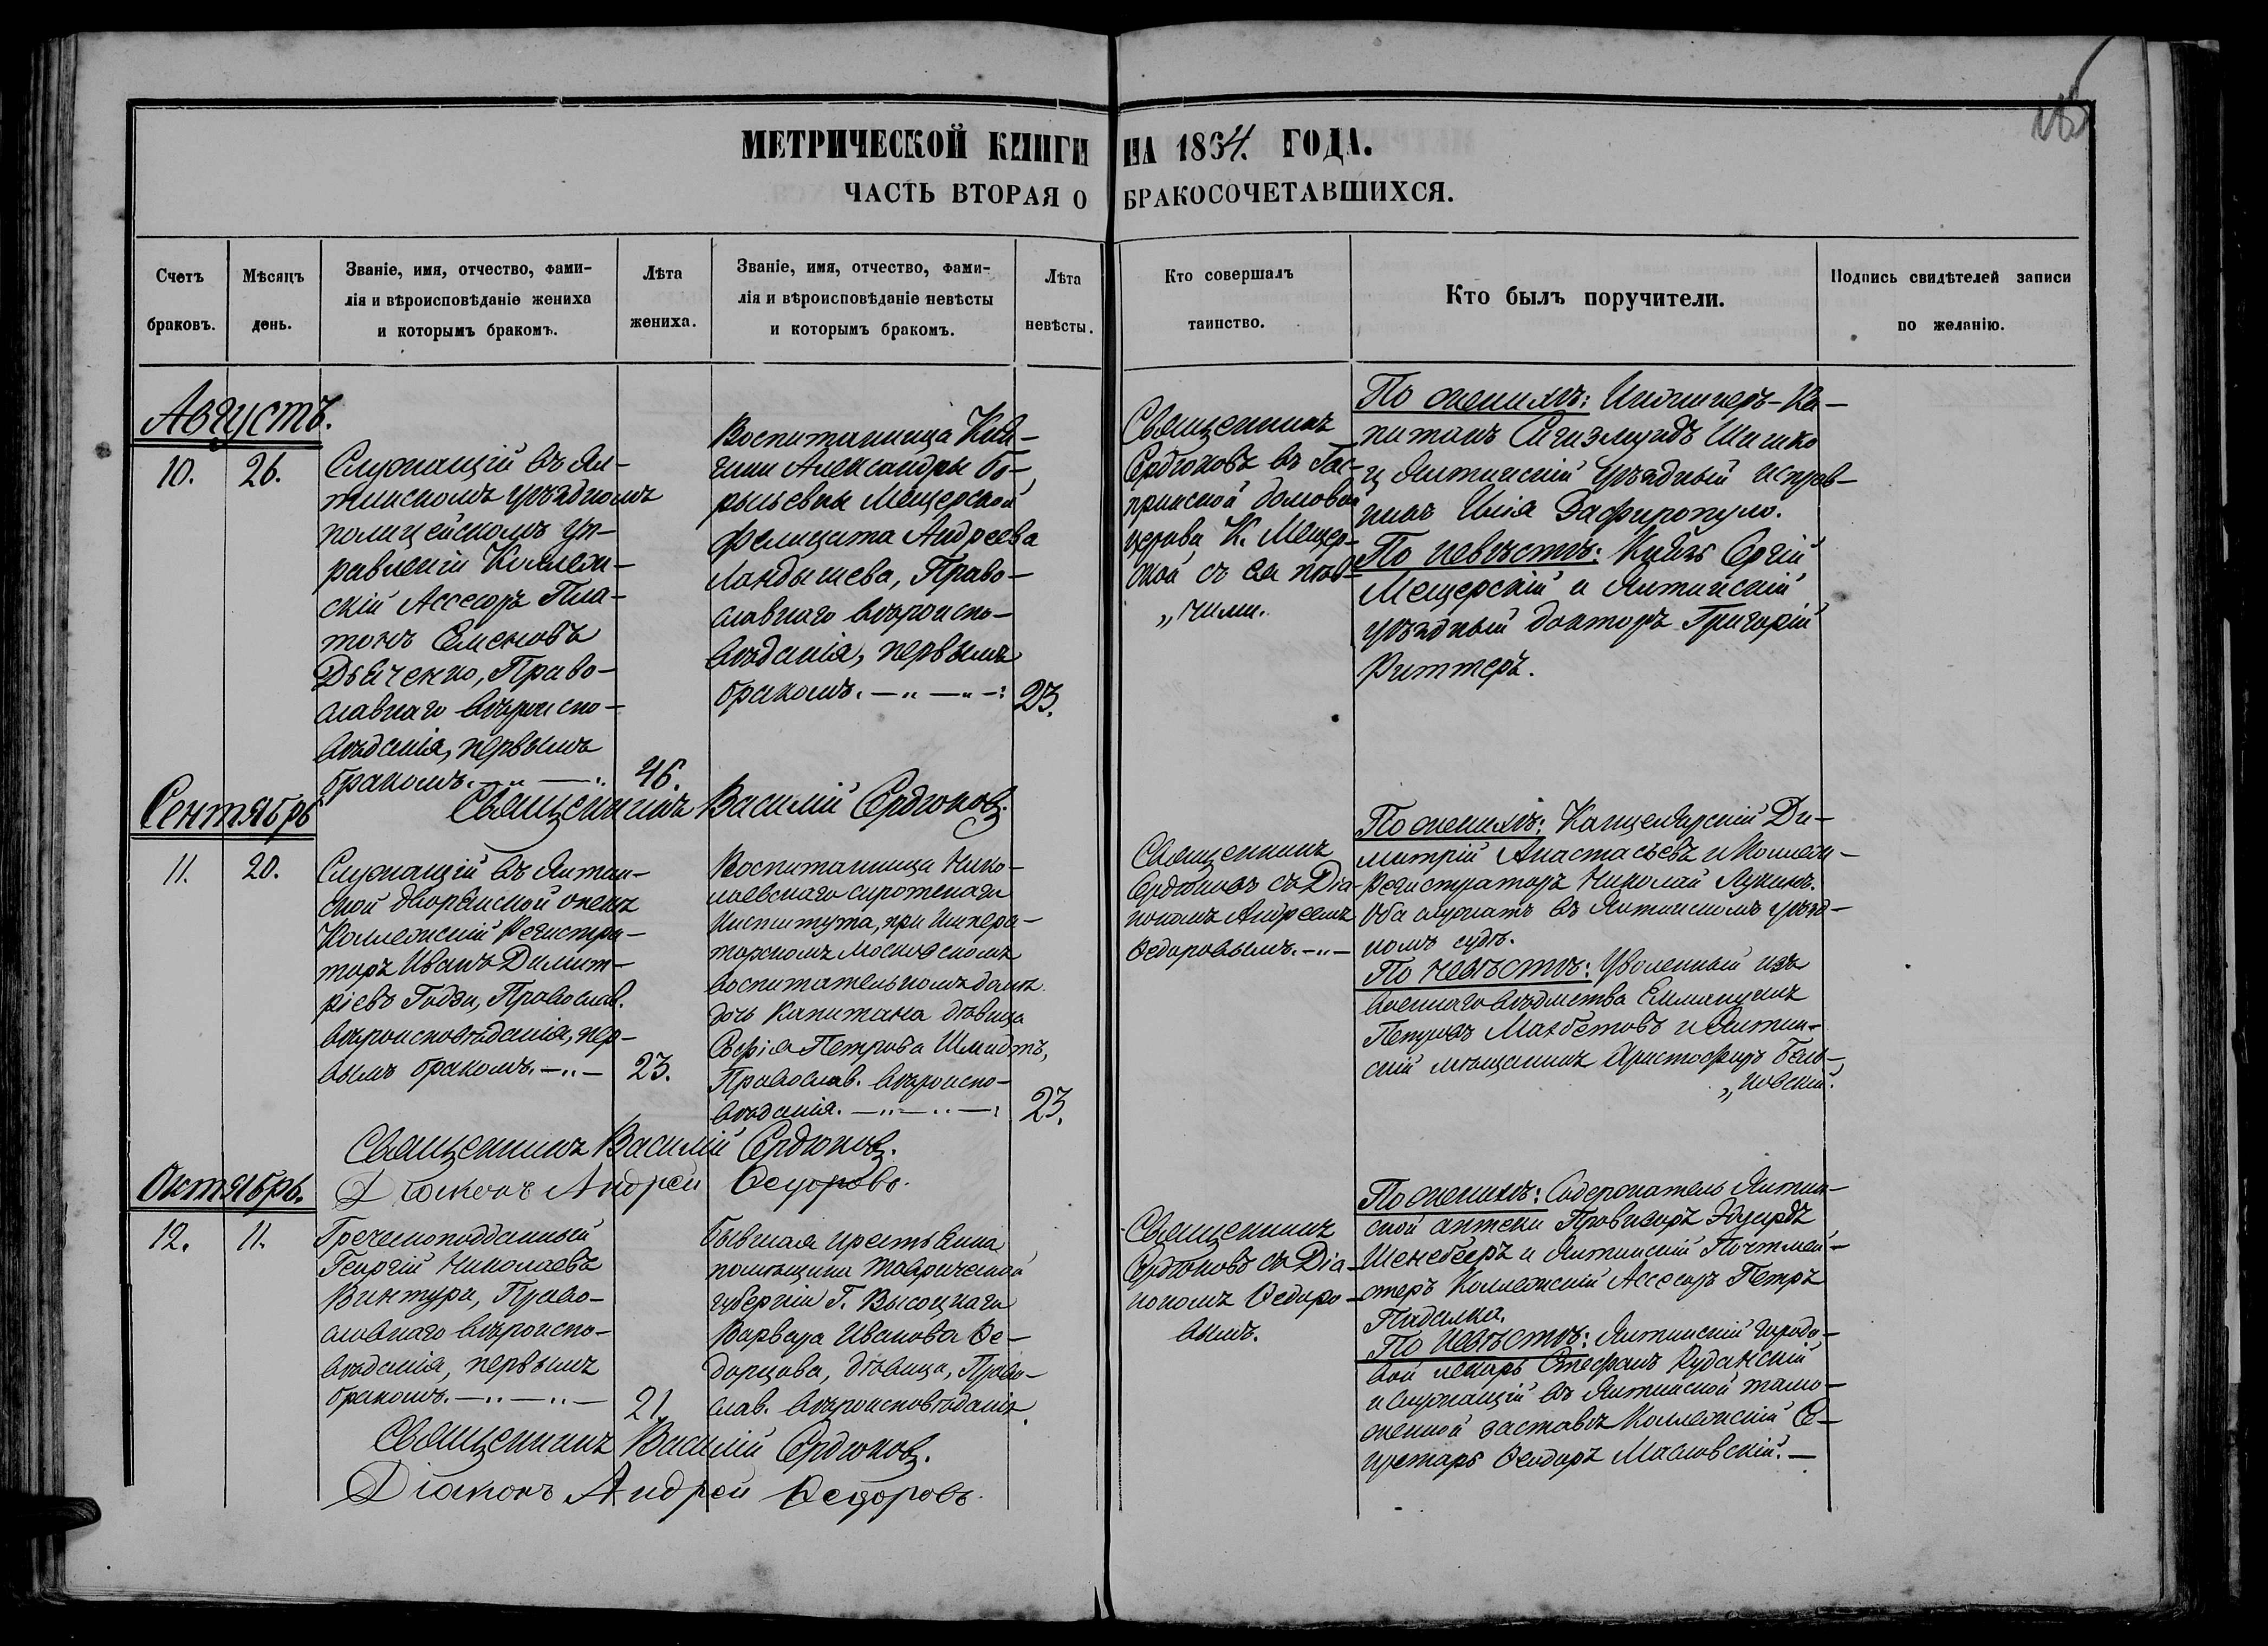 МЕТРИЧЕСКОЙ КНИГИ НА 1864. ГОДА.
ЧАСТЬ ВТОРАЯ О БРАКОСОЧЕТАВШИХСЯ.
Счетъ
браковъ.
Мѣсяцъ
день.
Званіе, имя, отчество, фами-
лія и вѣроисповѣданіе жениха
и которымъ бракомъ.
Лѣта
жениха.
Званіе, имя, отчество, фами-
лія и вѣроисповѣданіе невѣсты
и которымъ бракомъ.
Лѣта
невѣсты.
Кто совершалъ
таинство.
Кто былъ поручители.
Подпись свидѣтелей записи
по желанію.
Августъ.
10.
26.
Служащій въ Ял-
тинскомъ уѣздномъ
полицейскомъ уп-
равленіи Коллеж-
скій Ассесоръ Пла-
тонъ Семеновъ
Дьяченко, Право-
славнаго вѣроиспо-
вѣданія, первымъ
бракомъ.
46.
Воспитанница Кня-
гини Александры Бо-
рисьевны Мещерской
Фелицата Андреева
Ландышева, Право-
славнаго вѣроиспо-
вѣданія, первымъ
бракомъ.
23.
Священникъ
Сердюковъ въ Гас-
принской домовой
церкви К. Мещер-
ской съ ея пѣв-
„чими.
По женихѣ: Инженеръ-Ка-
питанъ Сигизмундъ Шишко
и Ялтинскій Уѣздный исправ-
никъ Илія Зафиропуло.
По невѣстѣ: Князь Сергій
Мещерскій и Ялтинскій
уѣздный докторъ Григорій
Риттеръ.
Священникъ Василій Сердюковъ.
Сентябрь
11.
20.
Служащій въ Ялтин-
ской дворянской опекѣ
Коллежскій Регистра-
торъ Иванъ Димит-
ріевъ Годзи, Православ.
вѣроисповѣданія, пер-
вымъ бракомъ.
23.
Воспитанница Нико-
лаевскаго сиротскаго
Института, при Импера-
торскомъ Московскомъ
воспитательномъ домѣ
дочь Капитана дѣвица
Софія Петрова Шмидтъ,
Православ. вѣроиспо-
вѣданія.
23.
Священникъ
Сердюковъ съ Діа-
кономъ Андреемъ
Ѳедоровымъ.
По женихѣ: Канцелярскій Ди-
митрій Анастасьевъ и Коллеж-
Регистраторъ Николай Лукинъ.
Оба служатъ въ Ялтинскомъ уѣзд-
номъ судѣ.
По невѣстѣ: Уволенный изъ
военнаго вѣдомства Еммануилъ
Петровъ Махбетовъ и Ялтин-
скій мѣщанинъ Христофоръ Бѣль-
„ховскій.
Священникъ Василій Сердюковъ.
Діаконъ Андрей Ѳедоровъ.
Октябрь.
12.
11.
Греческоподданный
Георгій Николаевъ
Винтури, Право-
славнаго вѣроиспо-
вѣданія, первымъ
бракомъ.
21.
Бывшая крестьянка
помѣщика Таврической
губерніи Г. Высоцкаго
Варвара Иванова Ѳе-
дорцова, дѣвица, Право-
слав. вѣроисповѣданія
Священникъ
Сердюковъ съ Діа-
кономъ Ѳедоро-
вымъ.
По женихѣ: Содержатель Ялтин-
ской аптеки Провизоръ Эдуардъ
Шенебееръ и Ялтинскій Почтмей-
стеръ Коллежскій Ассесоръ Петръ
Падалка.
По невѣстѣ: Ялтинскій городо-
вой лекарь Стефанъ Руданскій
и служащій въ Ялтинской тамо-
женной заставѣ Коллежскій Се-
кретарь Ѳеодоръ Масловскій.
Священникъ Василій Сердюковъ.
Діаконъ Андрей Ѳедоровъ.